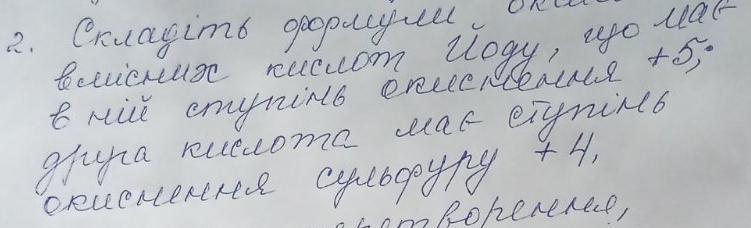 2. Складіть формули
вмісних кислот Йоду, що має
в ній ступінь окиснення +5;
друга кислота має ступінь
окиснення сульфуру +4,